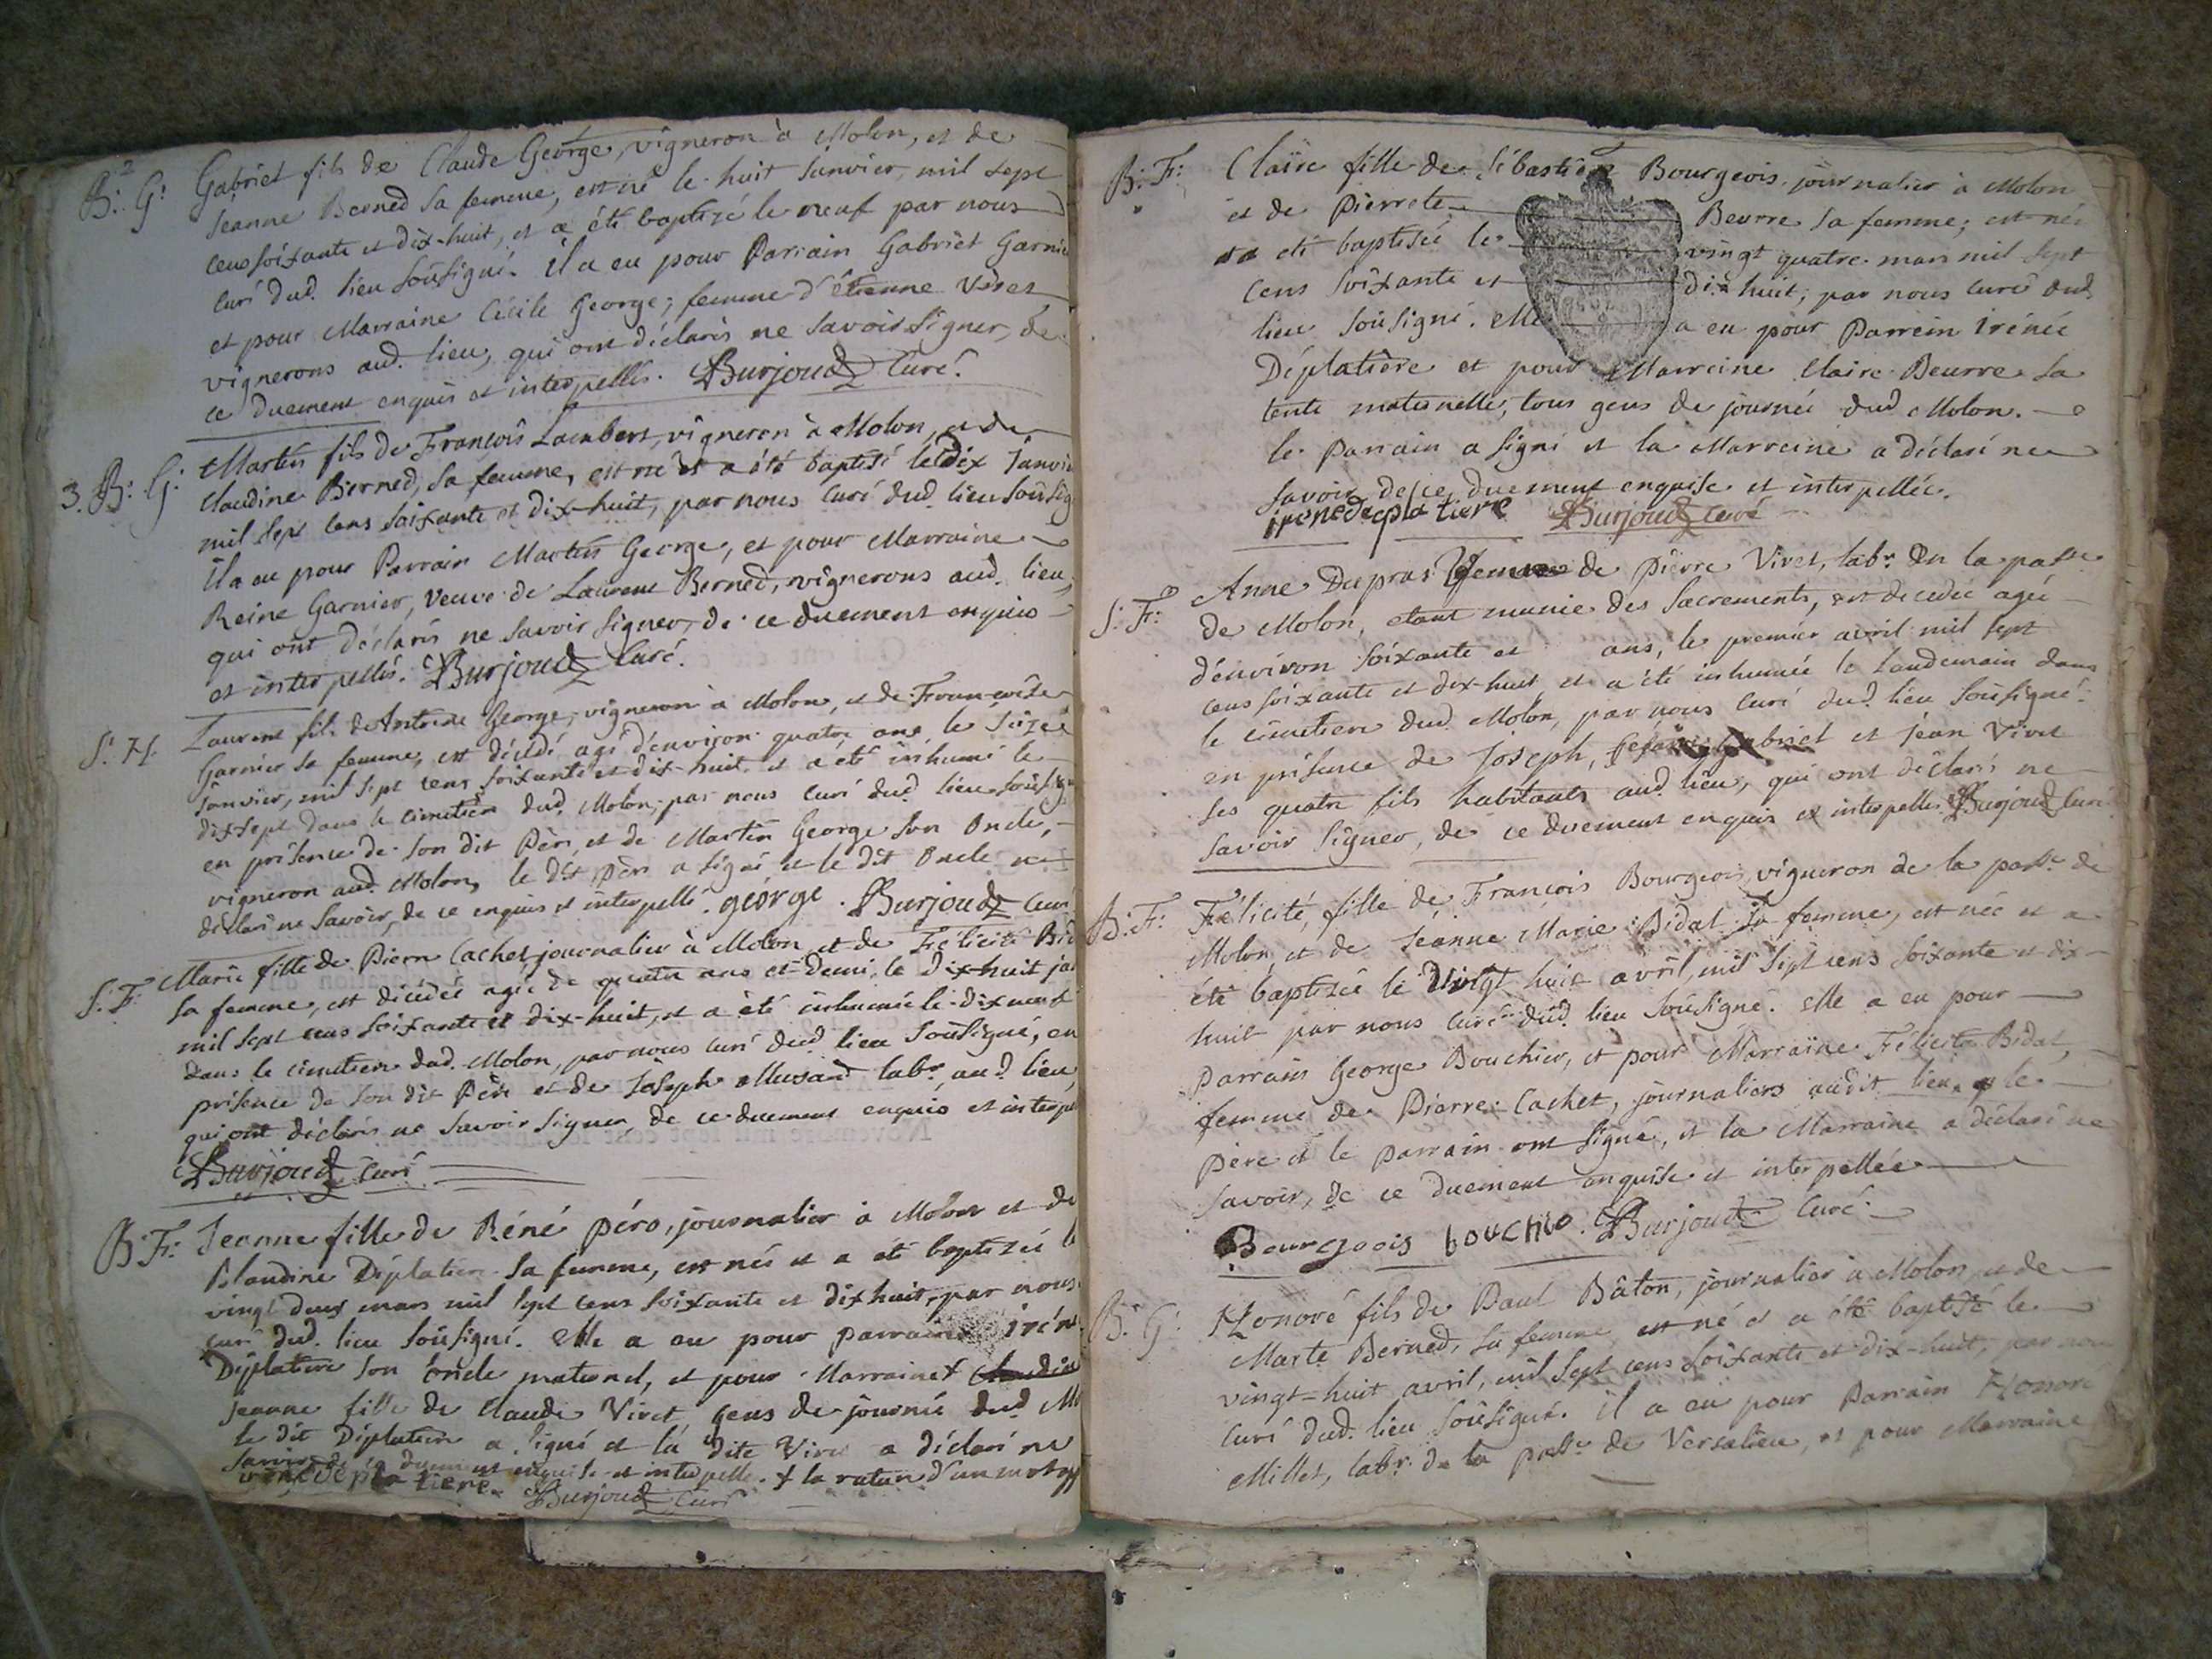 2
B: G: Gabriel fils de Claude George, vigneron à Molon, et de
Jeanne Berned sa femme, est né le huit Janvier, mil sept
cens soixante et dix-huit, et a été baptisé le neuf par nous
Curé dud. lieu soûsigné. il a eu pour Parrain Gabriel Garnie
et pour Marraine Cécile George; femme d'étienne Viret
vignerons aud. lieu, qui ont déclarés ne savoir signer, de
ce duement enquis et interpellés. Burjoud Curé.
3. B: G: Martin fils de François Lambert, vigneron à Molon, et de
Claudine Berned, sa femme, est né et a été baptisé le dix Janvie
mil sept cens soixante et dix-huit, par nous Curé dud. lieu soûsig
il a eu pour Parrain Martin George, et pour Marraine
Reine Garnier, veuve de Laurent Berned, vignerons aud. lieu,
qui ont déclarés ne savoir signer, de ce duement enquis
et interpellés. Burjoud Curé.
S: G. Laurent fils de Antoine George, vigneron à Molon, et de Françoise
Garnier sa femme, est décédé agé d'environ quatre ans le seize
Janvier, mil sept cens soixante et dix-huit, et a été inhumé le
dix sept dans le cimetière dud. Molon, par nous Curé dud. lieu soûsig
en présence de son dit Père, et de Martin George son Oncle,
vigneron aud. Molon, le dit Père a signé, et le dit Oncle
déclaré ne savoir, de ce enquis et interpellé. george. Burjoud Curé
S: F: Marie fille de Pierre Cachet journalier à Molon, et de Félicité Bid
sa femme, est décédée agée de quatre ans et demi, le dix-huit jan
mil sept cens soixante et dix-huit, et a été inhumée le dix neuf
dans le cimetiere dud. Molon, par nous Curé dud. lieu soûsigné, en
présence de son dit Père et de Joseph Musard labr. aud. lieu,
qui ont déclarés ne savoir signer, de ce duement enquis et interpe
Burjoud Curé
B: F: Jeanne fille de Réné Péro, journalier à Molon et de
Blandine Déplatiere sa femme, est née et a été baptisée le
vingt deux mars mil sept cens soixante et dix huit, par nous
Curé dud. lieu soûsigné. elle a eu pour parrain iréné
Déplatiere son oncle maternel, et pour Marraine +
Jeanne fille de Claude Viret, gens de journée dud. Mo
le dit Déplatiere a signé et la dite Viret a déclaré ne
savoir, de ce duement enquise et interpellée. + la rature d'un mot
deplatiere. Burjoud Curé
B: F: Claire fille de Sébastien Bourgeois, journalier à Molon
et de Pierrete Beurre sa femme; est née
et a été baptisée le vingt quatre mars mil sept
cens soixante et dix huit; par nous Curé dud.
lieu soûsigné. elle a eu pour Parrein irénée
Déplatière et pour Marreine Claire Beurre sa
tente maternelle, tous gens de journée dud Molon.
le Parrain a signé et la Marreine a déclaré ne
savoir, de ce, duement enquise et interpellée.
irenedeplatiere Burjoud Curé
S: F: Anne Dupras femme de Pierre Viret, labr. en la passe
de Molon, étant munie des Sacrements, est decedée agée
d'environ soixante et ans, le premier avril mil sept
cens soixante et dix-huit et a été inhumée le landemain dans
le cimetiere dud. Molon, par nous Curé dud. lieu soûsigné.
en présence de Joseph, Gabriel et Jean Viret
ses quatre fils habitants aud. lieu, qui ont déclarés ne
savoir signer, de ce duement enquis et interpellés. Burjoud Curé
B: F: Félicité, fille de François Bourgeois, vigneron de la passe. de
Molon, et de Jeanne Marie Bidal sa femme, est née et a
été baptisée le vingt huit avril, mil sept cens soixante et dix-
huit par nous Curé dud. lieu soûsigné. elle a eu pour
parrain George Bouchier, et pour Marraine Félicité Bidal,
femme de Pierre Cachet, journaliers audit lieu. le
père et le parrain ont signé, et la Marraine a déclaré ne
savoir, de ce duement enquise et interpellée
Bourgeois bouchie. Burjoud Curé.
B: G: Honoré fils de Paul Bâton, journalier à Molon, et de
Marte Berned, sa femme, est né et a été baptisé le
vingt-huit avril, mil sept cens soixante et dix-huit, par nou
Curé dud. lieu soûsigné. il a eu pour Parrain Honoré
Millet, labr. de la passe de Versalieu, et pour Marraine